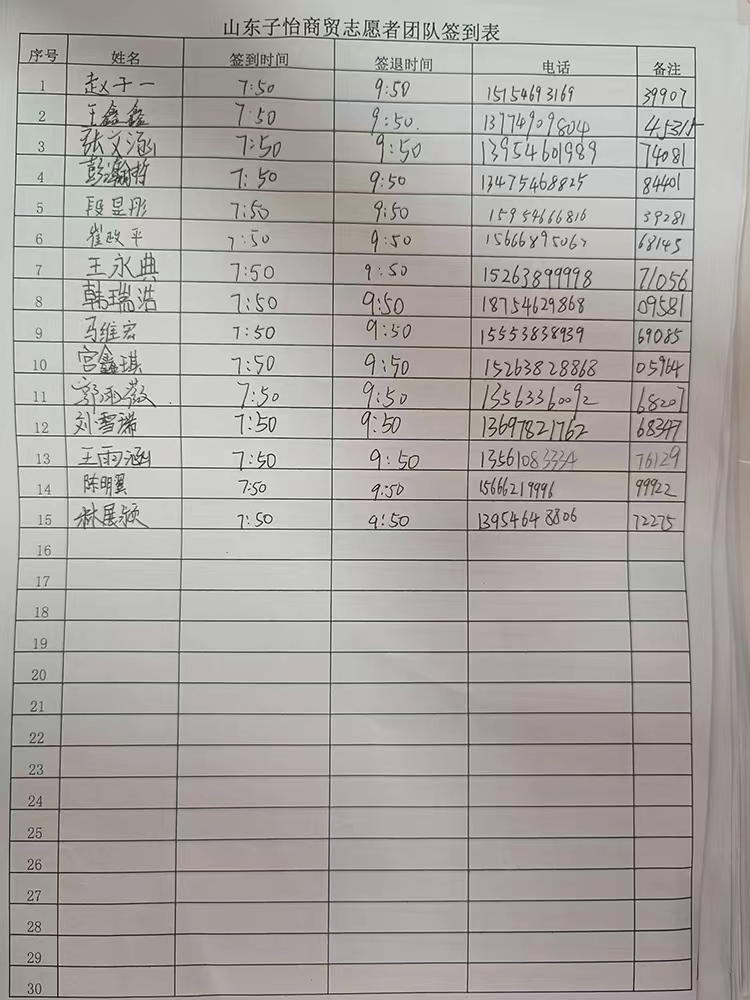 山东子怡商贸志愿者团队签到表
序号 姓名 签到时间 签退时间 电话 备注
1 赵子一 7:50 9:50 15154693169 39907
2 王鑫鑫 7:50 9:50. 13774909804 45315
3 张文涵 7:50 9:50 13954601989 74081
4 彭瀚哲 7:50 9:50 13475468825 84401
5 段昱彤 7:50 9:50 15954666816 39281
6 崔政平 7:50 9:50 15666895062 68145
7 王永典 7:50 9:50 15263899998 71056
8 韩瑞浩 7:50 9:50 18754629868 09581
9 马维宏 7:50 9:50 15553838939 69085
10 宫鑫琪 7:50 9:50 15263828868 05964
11 郭雨薇 7:50 9:50 13563360092 68207
12 刘雪瑞 7:50 9:50 13697821762 68347
13 王雨涵 7:50 9:50 13561083334 76129
14 陈明翼 7:50 9:50 15666219996 99922
15 林展颍 7:50 9:50 13954648806 72275
16
17
18
19
20
21
22
23
24
25
26
27
28
29
30